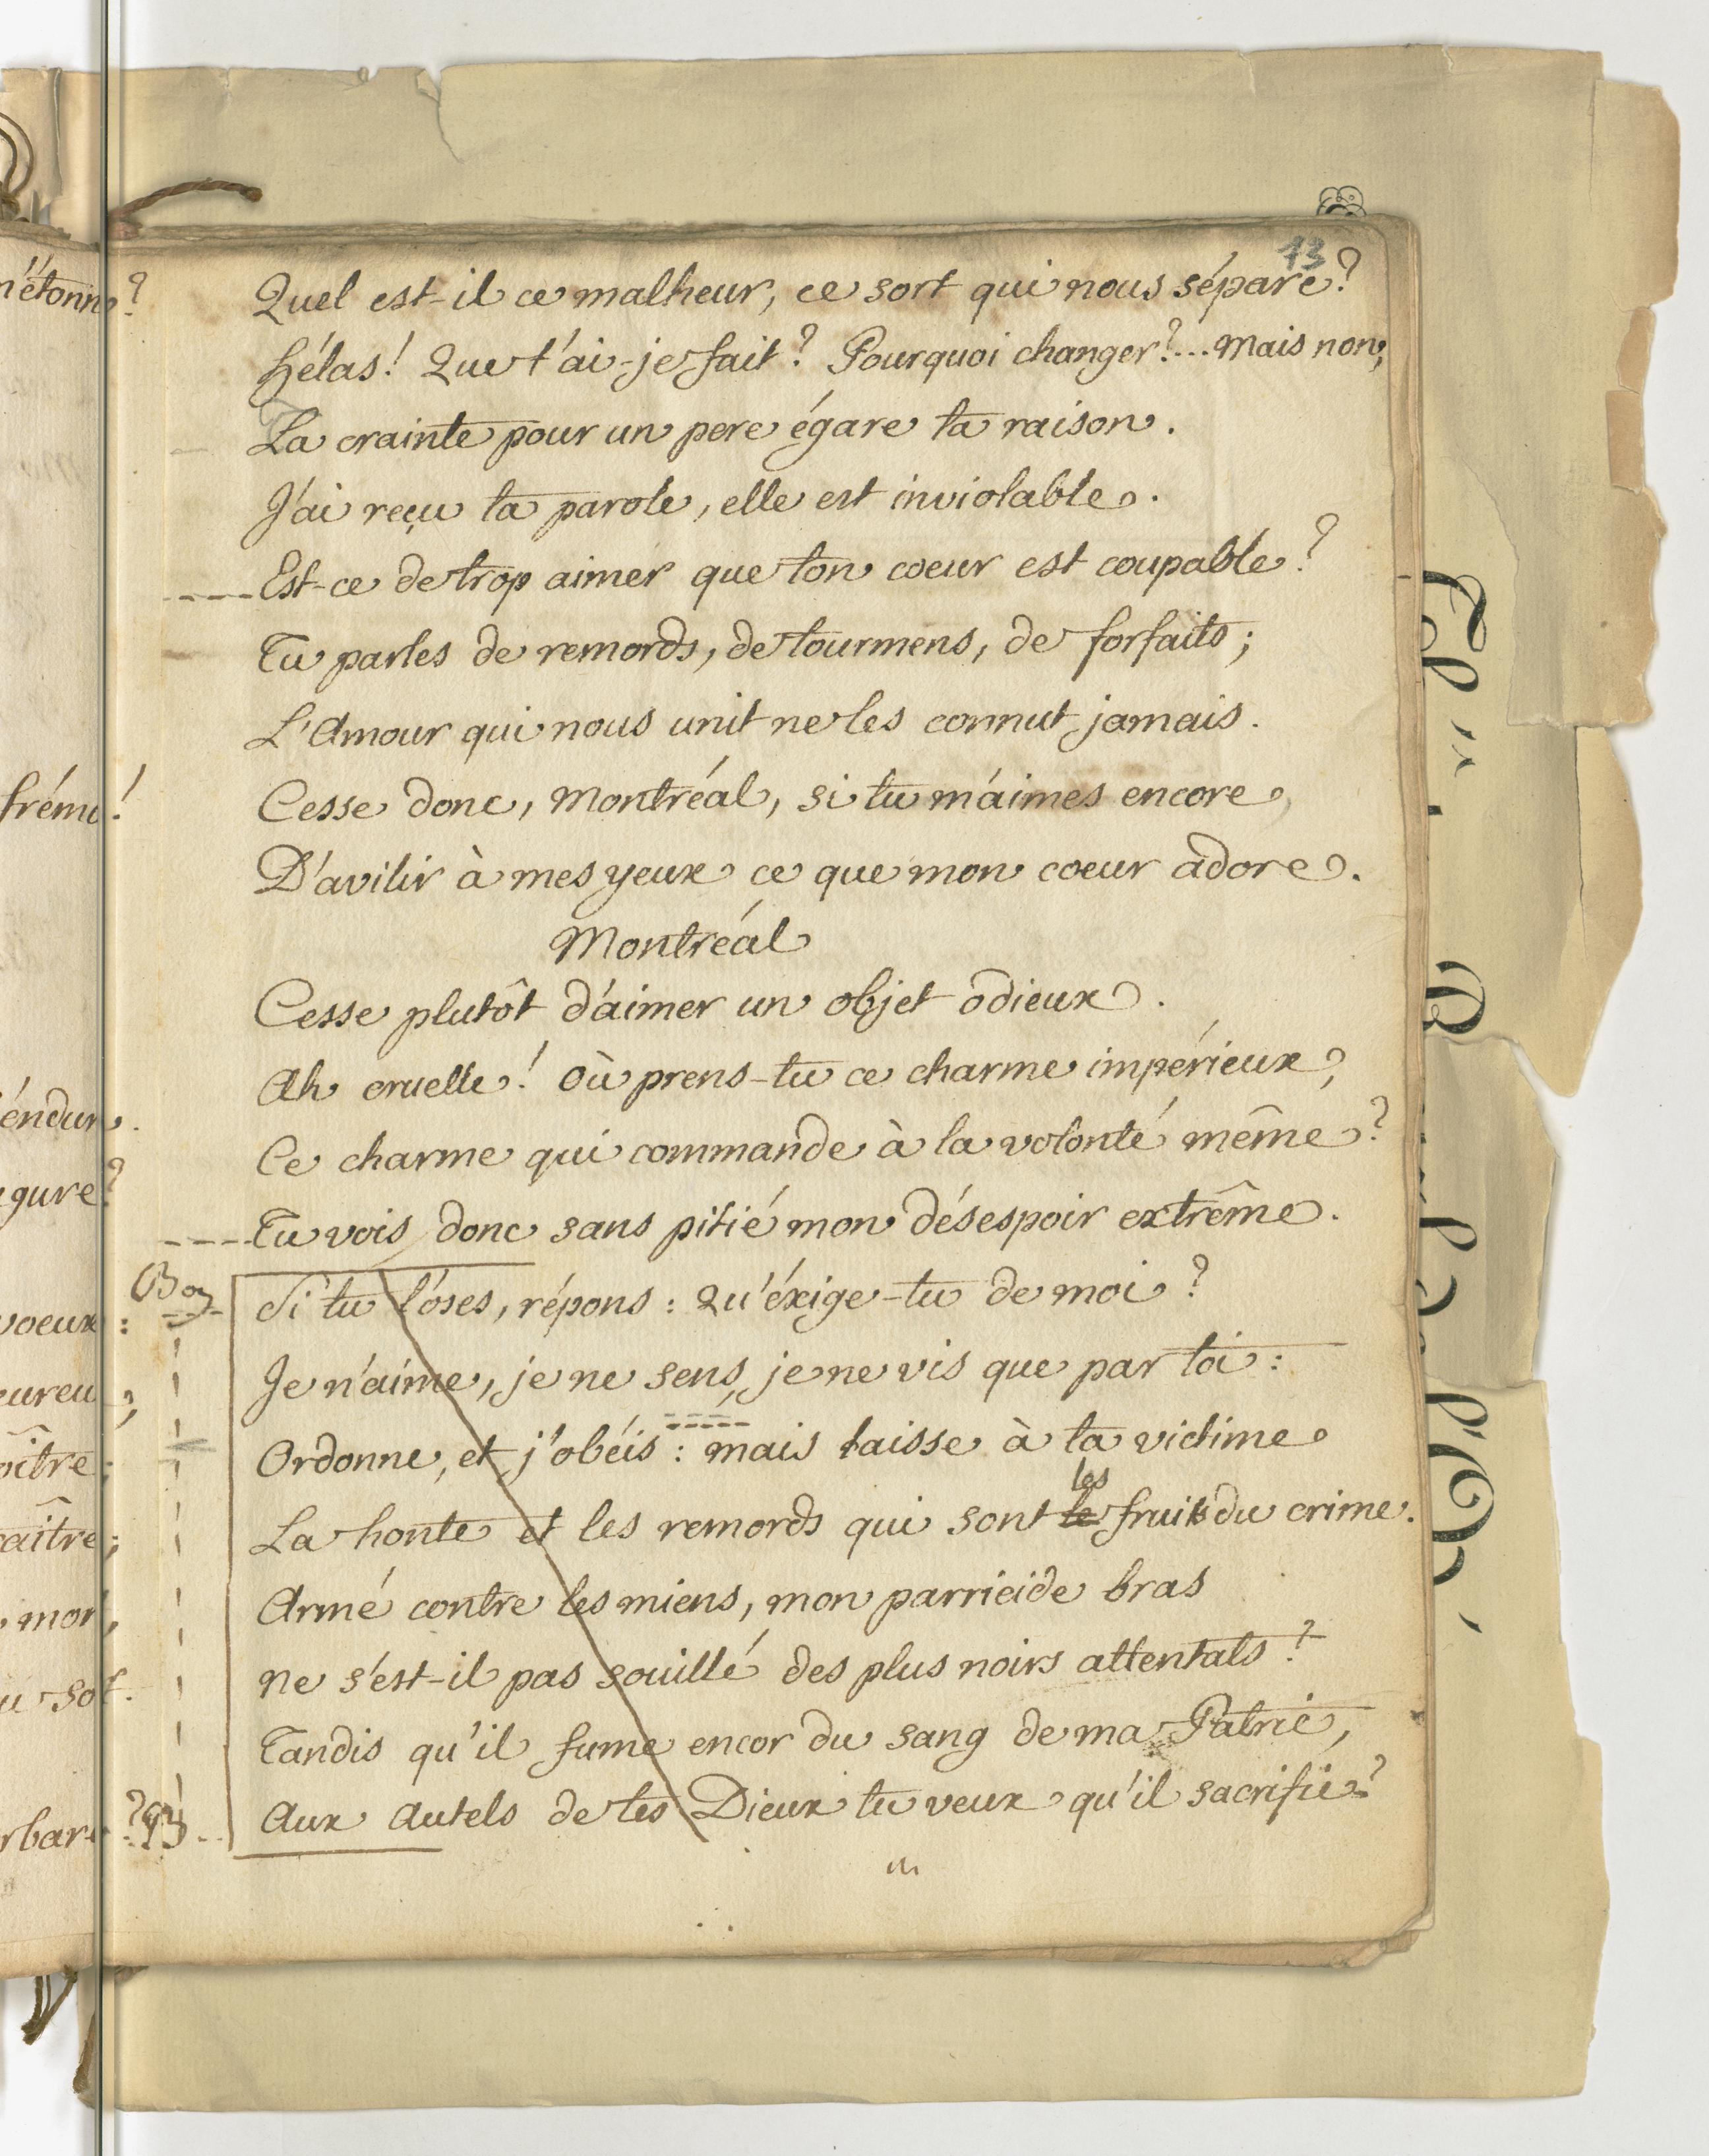 13
Quel est-il ce malheur, ce sort qui nous sépare?
hélas! Que t'ai-je fait? Pourquoi changer?... mais non,
La crainte pour un pere égare ta raison.
J'ai reçu ta parole, elle est inviolable.
Est-ce de trop aimer que ton coeur est coupable?
Tu parles de remords, de tourmens, de forfaits;
L'Amour qui nous unit ne les connut jamais.
Cesse donc, Montréal, si tu m'aimes encore,
D'avilir à mes yeux ce que mon coeur adore.
Montréal
Cesse plutôt d'aimer un objet odieux.
Ah cruelle! où prens-tu ce charme impérieux,
Ce charme qui commande à la volonté même?
Tu vois donc sans pitié mon désespoir extrême.
Bon
Si tu l'oses, répons: Qu'éxige-tu de moi?
Je n'aime, je ne sens, je ne vis que par toi:
Ordonne, et j'obéis: mais laisse à ta victime
les
La honte et les remords qui sont le fruits du crime.
Armé contre les miens, mon parricide bras
ne s'est-il pas souillé des plus noirs attentats?
Tandis qu'il fume encor du sang de ma Patrie,
Aux autels de tes Dieux tu veux qu'il sacrifie?